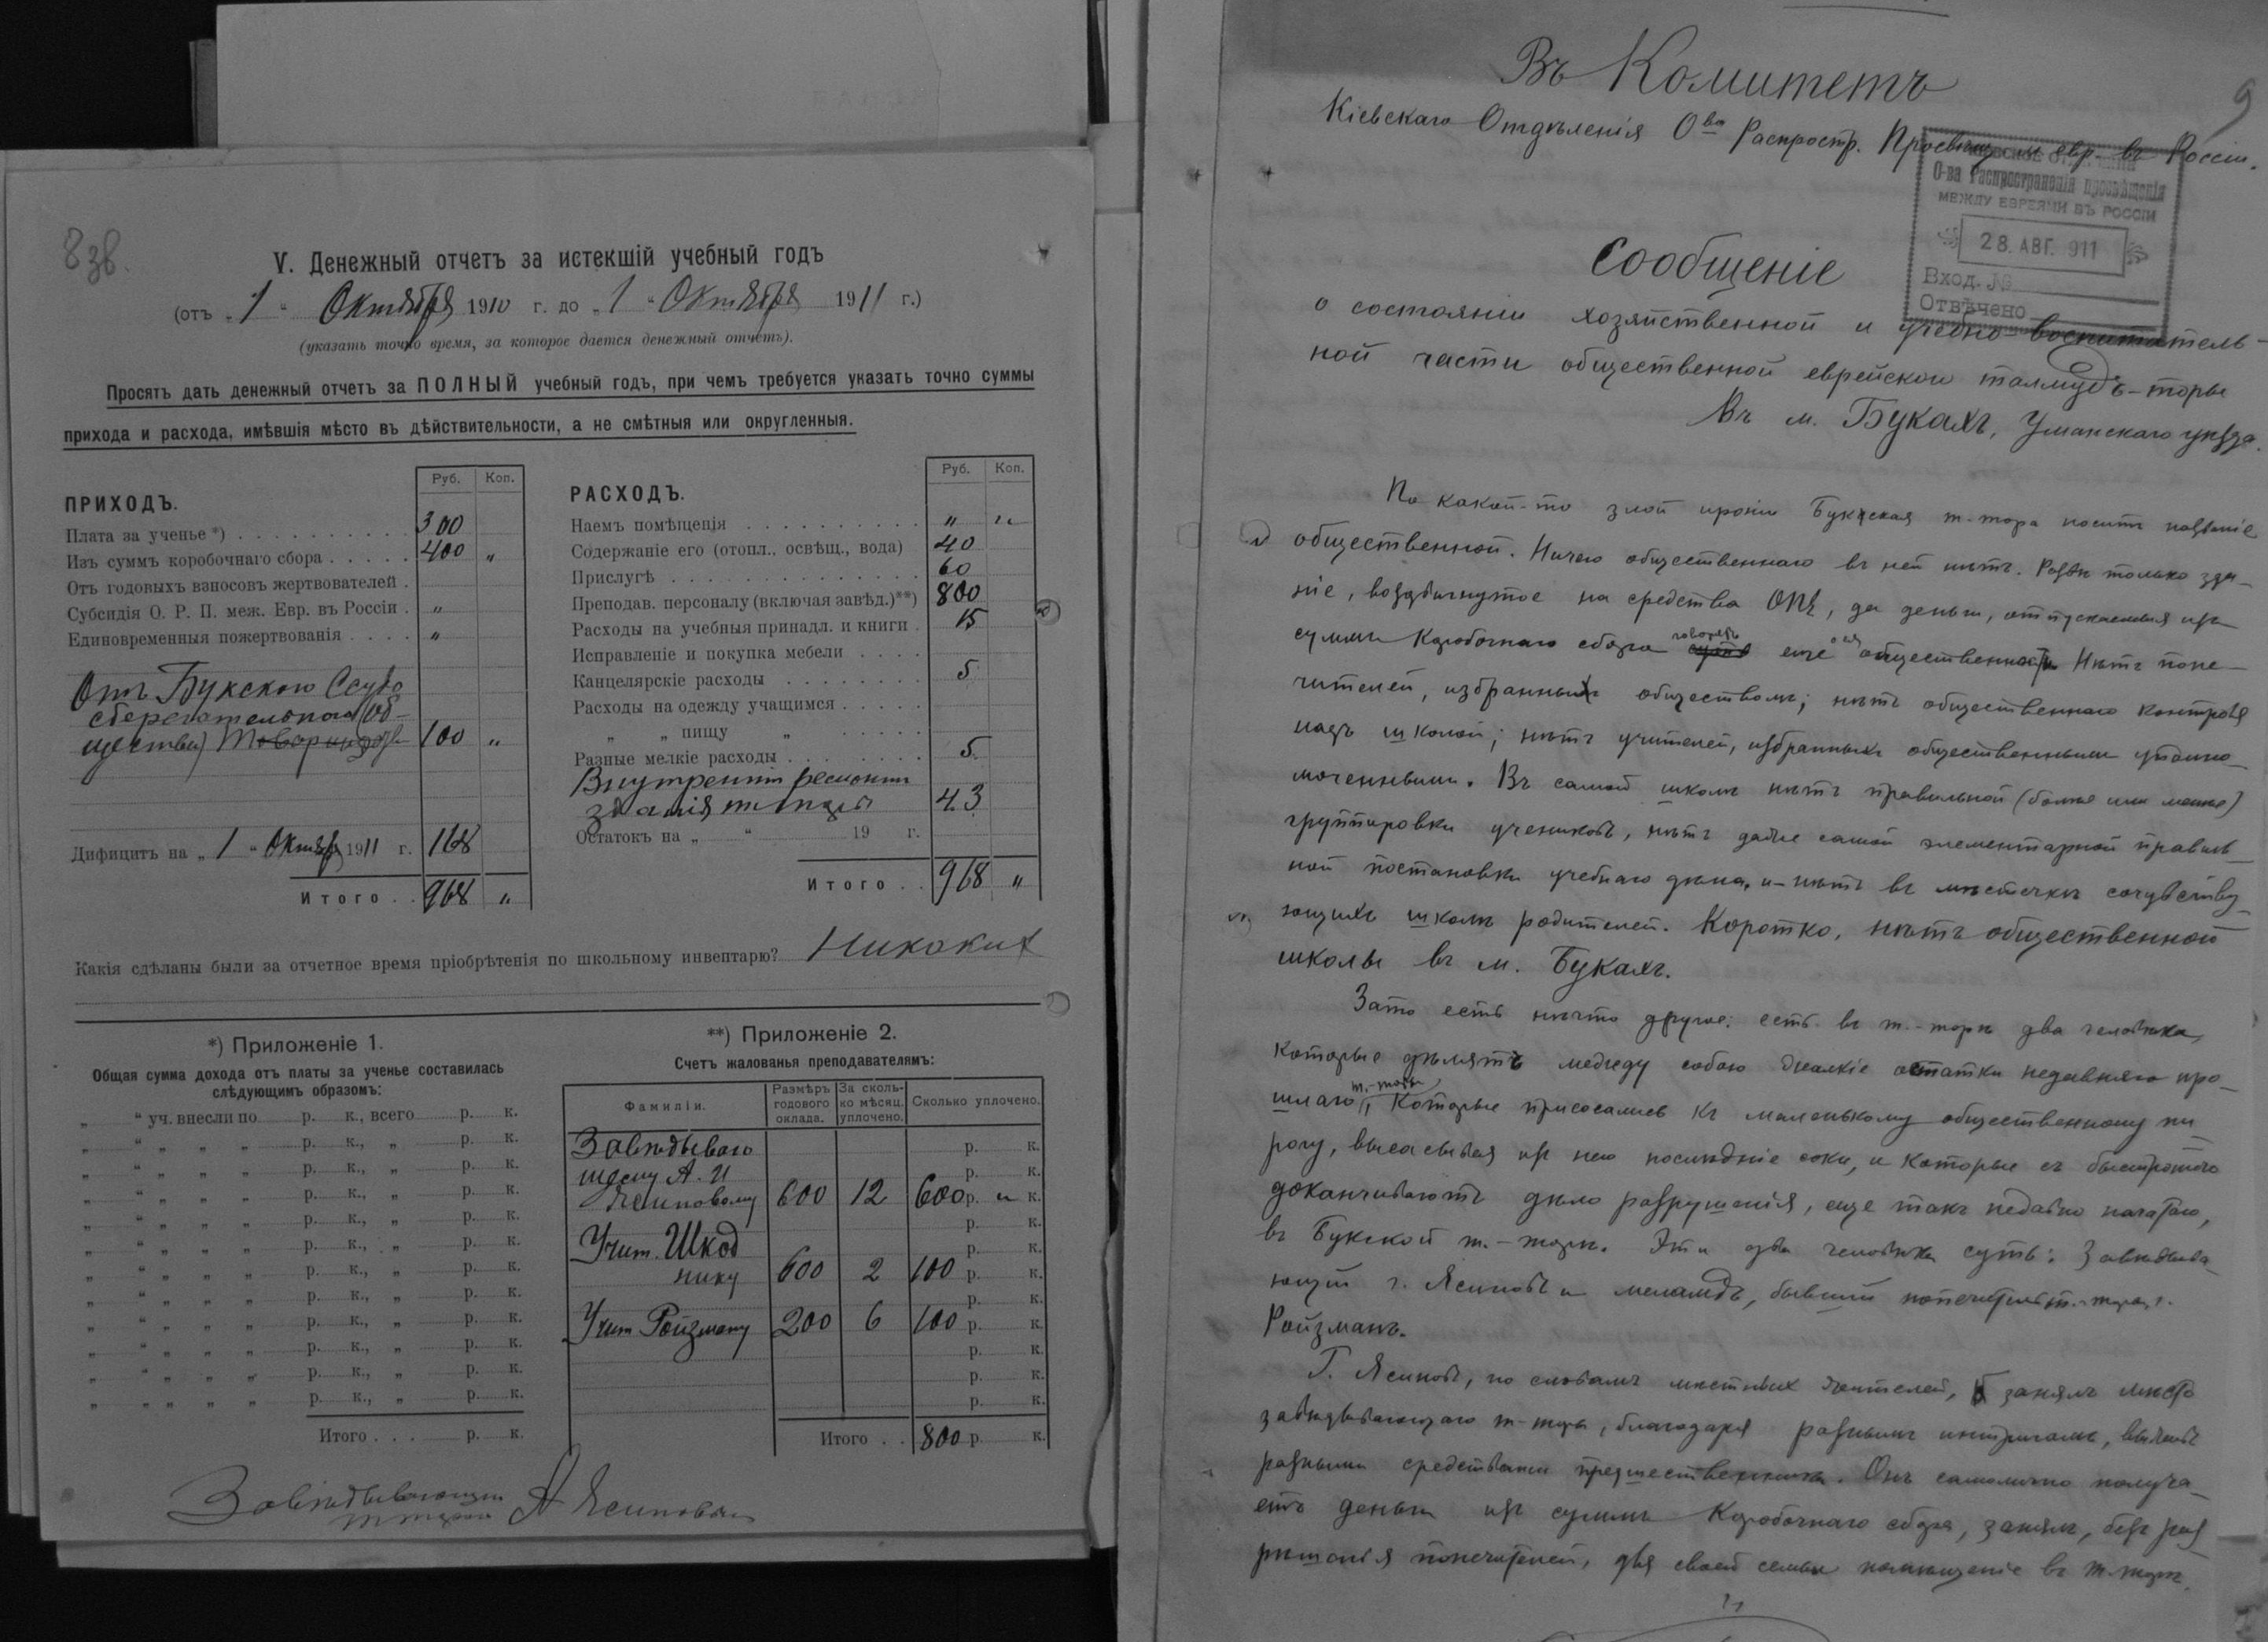 8 зв.
V. Денежный отчетъ за истекшій учебный годъ
(отъ „1“ Октября 1910 г. до „1“ Октября 1911 г.)
(указать точно время, за которое дается денежный отчетъ).
Просятъ дать денежный отчетъ за ПОЛНЫЙ учебный годъ, при чемъ требуется указать точно суммы
прихода и расхода, имѣвшія мѣсто въ дѣйствительности, а не смѣтныя или округленныя.
ПРИХОДЪ. Руб. Коп.
Плата за ученье *) 300
Изъ суммъ коробочнаго сбора 400 „
Отъ годовыхъ взносовъ жертвователей
Субсидія О. Р. П. меж. Евр. въ Россіи „
Единовременныя пожертвованія „
Отъ Букскаго Ссудо
сберегательнаго (об-
щества) Товарищества 100 „
Дифицитъ на „1“ Октября 1911 г. 168
Итого . . 968 „
РАСХОДЪ. Руб. Коп.
Наемъ помѣщенія „ „
Содержаніе его (отопл., освѣщ., вода) 40
Прислугѣ 60
Преподав. персоналу (включая завѣд.)**) 800
Расходы на учебныя принадл. и книги 15
Исправленіе и покупка мебели
Канцелярскіе расходы 5
Расходы на одежду учащимся
„ „ пищу „
Разные мелкіе расходы 5
Внутренній ремонтъ
зданія т торы 43
Остатокъ на „ “ 19 г.
Итого . . 968 „
Какія сдѣланы были за отчетное время пріобрѣтенія по школьному инвентарю? Никакихъ
*) Приложеніе 1.
Общая сумма дохода отъ платы за ученье составилась
слѣдующимъ образомъ:
„ “ уч. внесли по р. к., всего р. к.
„ “ „ „ „ р. к., „ р. к.
„ “ „ „ „ р. к., „ р. к.
„ “ „ „ „ р. к., „ р. к.
„ “ „ „ „ р. к., „ р. к.
„ “ „ „ „ р. к., „ р. к.
„ “ „ „ „ р. к., „ р. к.
„ “ „ „ „ р. к., „ р. к.
„ “ „ „ „ р. к., „ р. к.
„ “ „ „ „ р. к., „ р. к.
„ “ „ „ „ р. к., „ р. к.
„ “ „ „ „ р. к., „ р. к.
Итого . . . р. к.
**) Приложеніе 2.
Счетъ жалованья преподавателямъ:
Фамиліи. Размѣръ годового оклада. За сколь-ко мѣсяц. уплочено. Сколько уплочено.
Завѣдываю р. к.
щему А. И р. к.
Ясиновому 600 12 600 р. „ к.
Учит. Шкод р. к.
нику 600 2 100 р. к.
Учит Ройзману 200 6 100 р. к.
Итого . . 800 р. к.
Завѣдывающій
т торой А Ясиновый
9
Въ Комитетъ
Кіевскаго Отдѣленія О-ва Распростр. Просвѣщ. м евр. въ Россіи.
О-ва Распространенія просвѣщенія
МЕЖДУ ЕВРЕЯМИ ВЪ РОССІИ
28. АВГ. 911
Вход. №
Отвѣчено
Сообщеніе
о состояніи хозяйственной и учебно-воспитатель-
ной части общественной еврейской талмудъ-торы
Въ м. Букахъ, Уманскаго уѣзда.
По какой-то злой ироніи Букская т-тора носитъ названіе
общественной. Ничего общественнаго въ ней нѣтъ. Развѣ только зда-
ніе, воздвигнутое на средства ОПЕ, да деньги, отпускаемыя изъ
суммъ Коробочнаго сбора говорятъ еще о ея общественности. Нѣтъ попе-
чителей, избранныхъ обществомъ; нѣтъ общественнаго контроля
надъ школой; нѣтъ учителей, избранныхъ общественными уполно-
моченными. Въ самой школѣ нѣтъ правильной (болѣе или менѣе)
группировки учениковъ, нѣтъ даже самой элементарной правиль-
ной постановки учебнаго дѣла, и-нѣтъ въ мѣстечкѣ сочувству-
ющихъ школѣ родителей. Коротко, нѣтъ общественной
школы въ м. Букахъ.
Зато есть нѣчто другое: есть въ т.-торѣ два человѣка,
которые дѣлятъ между собою жалкіе остатки недавняго про-
шлаго т.-торы, которые присосались къ маленькому общественному пи
рогу, высасывая изъ него послѣдніе соки, и которые съ быстротою
доканчиваютъ дѣло разрушенія, еще такъ недавно начатаго,
въ Букской т.-торѣ. Эти два человѣка суть: Завѣдыва-
ющій г. Ясиновъ и меламдъ, бывшій попечитель т.-торы, г.
Ройзманъ.
Г. Ясиновъ, по словамъ мѣстныхъ жителей, занялъ мѣсто
завѣдывающаго т-торы, благодаря разнымъ интригамъ, выживъ
разными средствами предшественника. Онъ самолично получа-
етъ деньги изъ суммъ Коробочнаго сбора, занялъ, безъ раз
рѣшенія попечителей, для своей семьи помѣщеніе въ т.-торѣ,